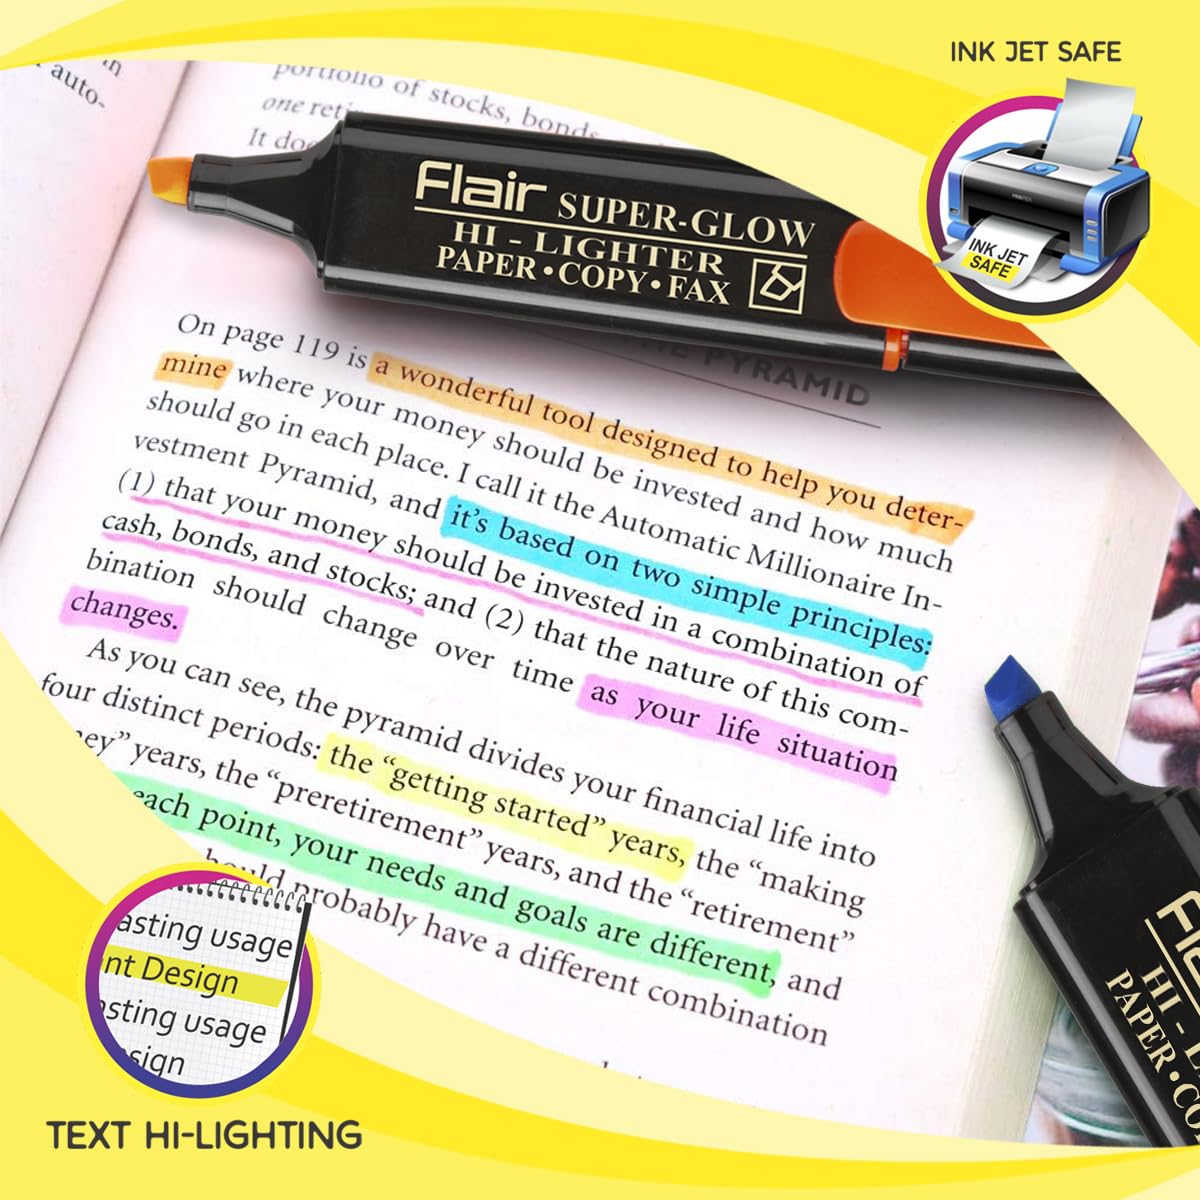 INK JET SAFE
auto-
portfolio of stocks, bonds,
one
It
Flair SUPER-GLOW
HI - LIGHTER
PAPER • COPY • FAX
INK JET
SAFE
THE PYRAMID
On page 119 is a wonderful tool designed to help you deter-
mine where your money should be invested and how much
should go in each place. I call it the Automatic Millionaire In-
vestment Pyramid, and it's based on two simple principles:
(1) that your money should be invested in a combination of
cash, bonds, and stocks; and (2) that the nature of this com-
bination should change over time as your life situation
changes.
As you can see, the pyramid divides your financial life into
four distinct periods: the “getting started” years, the “making
years, the “preretirement” years, and the “retirement”
each point, your needs and goals are different, and
probably have a different combination
Flai
HI - L
PAPER • CO
asting usage
nt Design
asting usage
sign
TEXT HI-LIGHTING